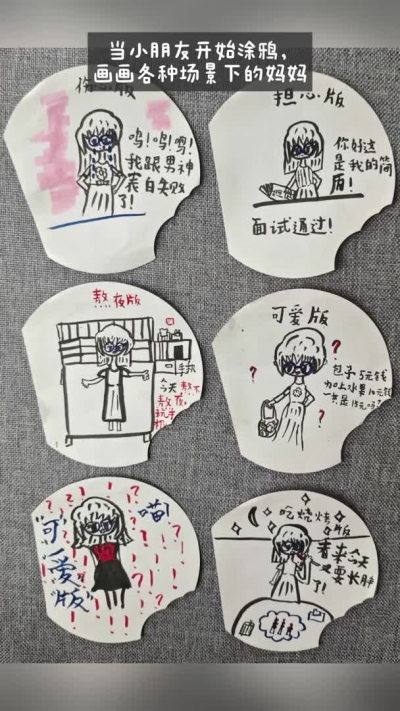 当小朋友开始涂鸦,
画画各种场景下的妈妈
伤心版
呜!呜!呜!
我跟男神
表白失败
了!
担心版
你好这
是我的简
历!
面试通过!
熬夜版
手机
今天熬了
熬夜,
玩手
机
可爱版
包子5元钱
加上水果10元钱
一共是15元吗?
喵!
"可
爱
版"
吃烧烤版
看来今天
又要长胖
了!